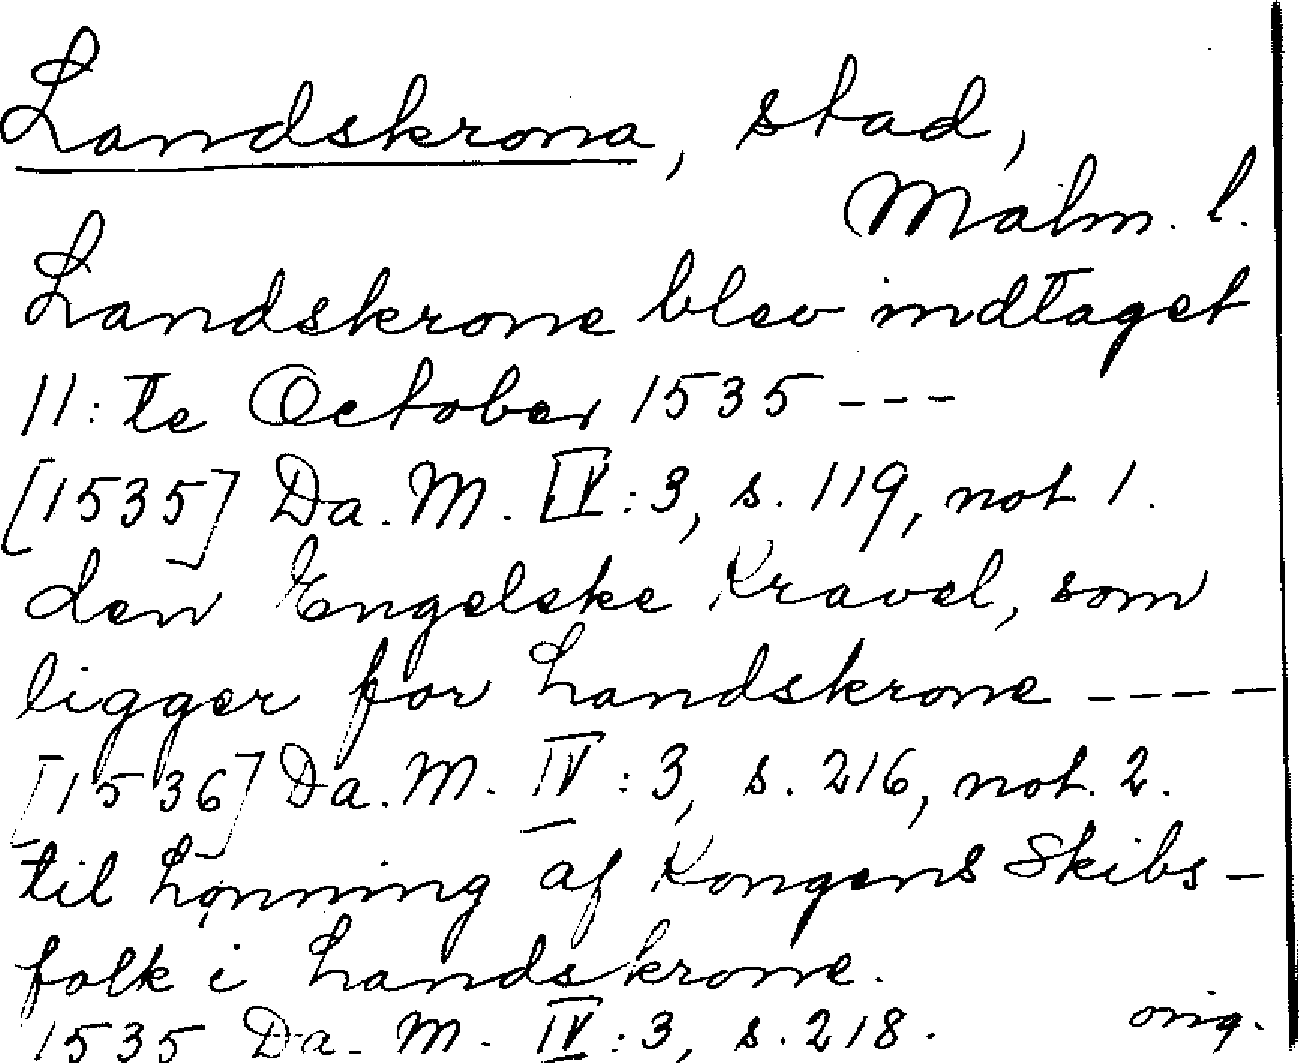 Landskrona, stad,
Malm. l.
Landskrone blev indtaget
11:te October 1535 ---
[1535] Da. M. IV:3, s. 119, not 1.
den Engelske Kravel, som
ligger for Landskrone ----
[1536] Da. M. IV:3, s. 216, not. 2.
til Lønning af Kongens Skibs-
folk i Landskrone.
1535 Da. M. IV:3, s. 218. orig.